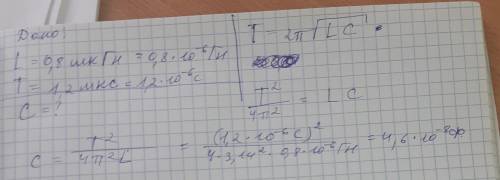 Дано:
L = 0,8 мкГн = 0,8·10⁻⁶ Гн
T = 1,2 мкс = 1,2·10⁻⁶ с
C = ?
T = 2π√LC
T²/4π² = LC
C = T²/4π²L = (1,2·10⁻⁶ с)²/4·3,14²·0,8·10⁻⁶ Гн = 4,6·10⁻⁸ Ф